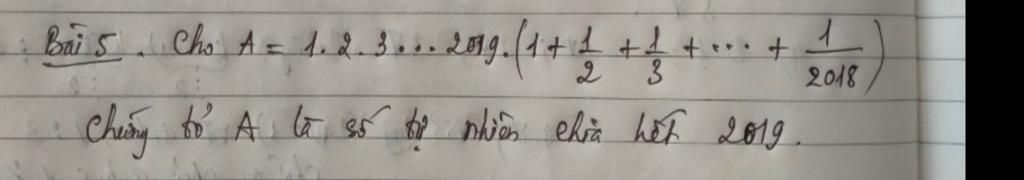 Bài 5. Cho A = 1.2.3...2019.(1 + 1/2 + 1/3 + ... + 1/2018)
Chứng tỏ A là số tự nhiên chia hết 2019.